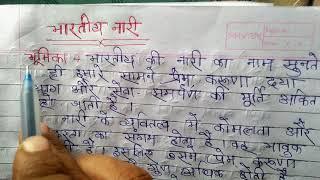 भारतीय नारी
भूमिका - भारतीय की नारी का नाम सुनते
ही हमारे सामने प्रेम करूणा दया
त्याग और सेवा समर्पण की मूर्ति अंकित
हो जाती है।
नारी के व्यक्तित्व में कोमलता और
का संगम होता है। वह भावुक
है। इसलिए उसमें प्रेम करूणा
अधिक होती है